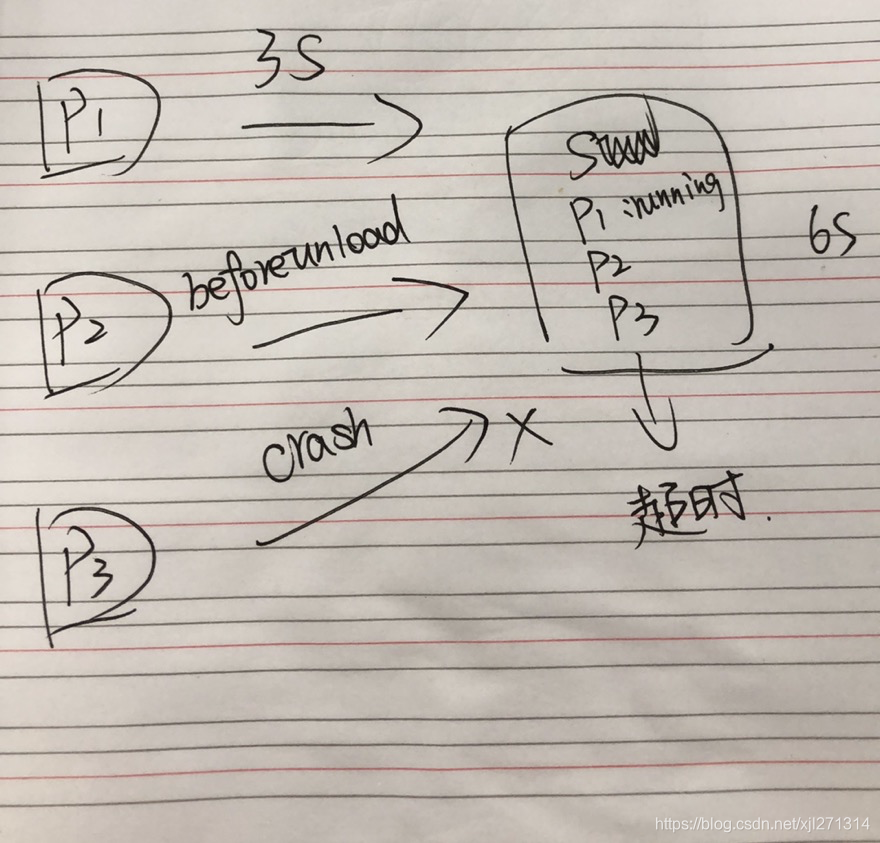 3S
P1
beforeunload
P2
crash
X
P3
P1:running
P2
P3
6S
超时.
https://blog.csdn.net/xjl271314